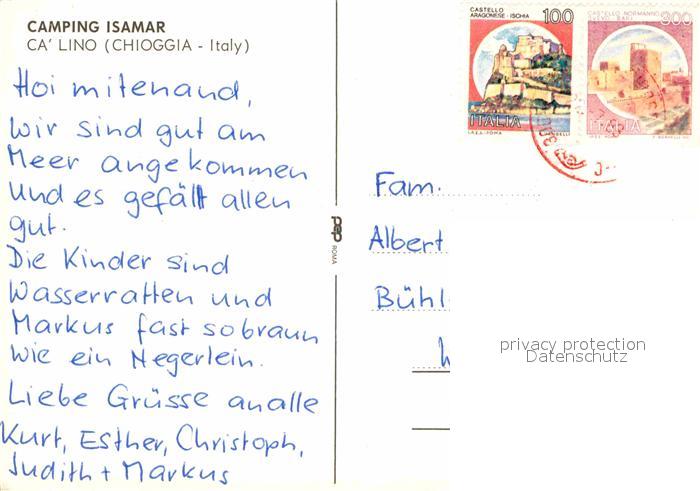 CAMPING ISAMAR
CA' LINO (CHIOGGIA - Italy)
Hoi mitenand,
wir sind gut am
Meer angekommen
und es gefällt allen
gut.
Die Kinder sind
Wasserratten und
Markus fast so braun
wie ein Negerlein.
Liebe Grüsse an alle
Kurt, Esther, Christoph,
Judith + Markus
pep ROMA
CASTELLO
ARAGONESE - ISCHIA
100
ITALIA
I.P.Z.S. - ROMA
CASTELLO NORMANNO
SVEVO - BARI
300
ITALIA
Fam.
Albert
Bühl
privacy protection
Datenschutz